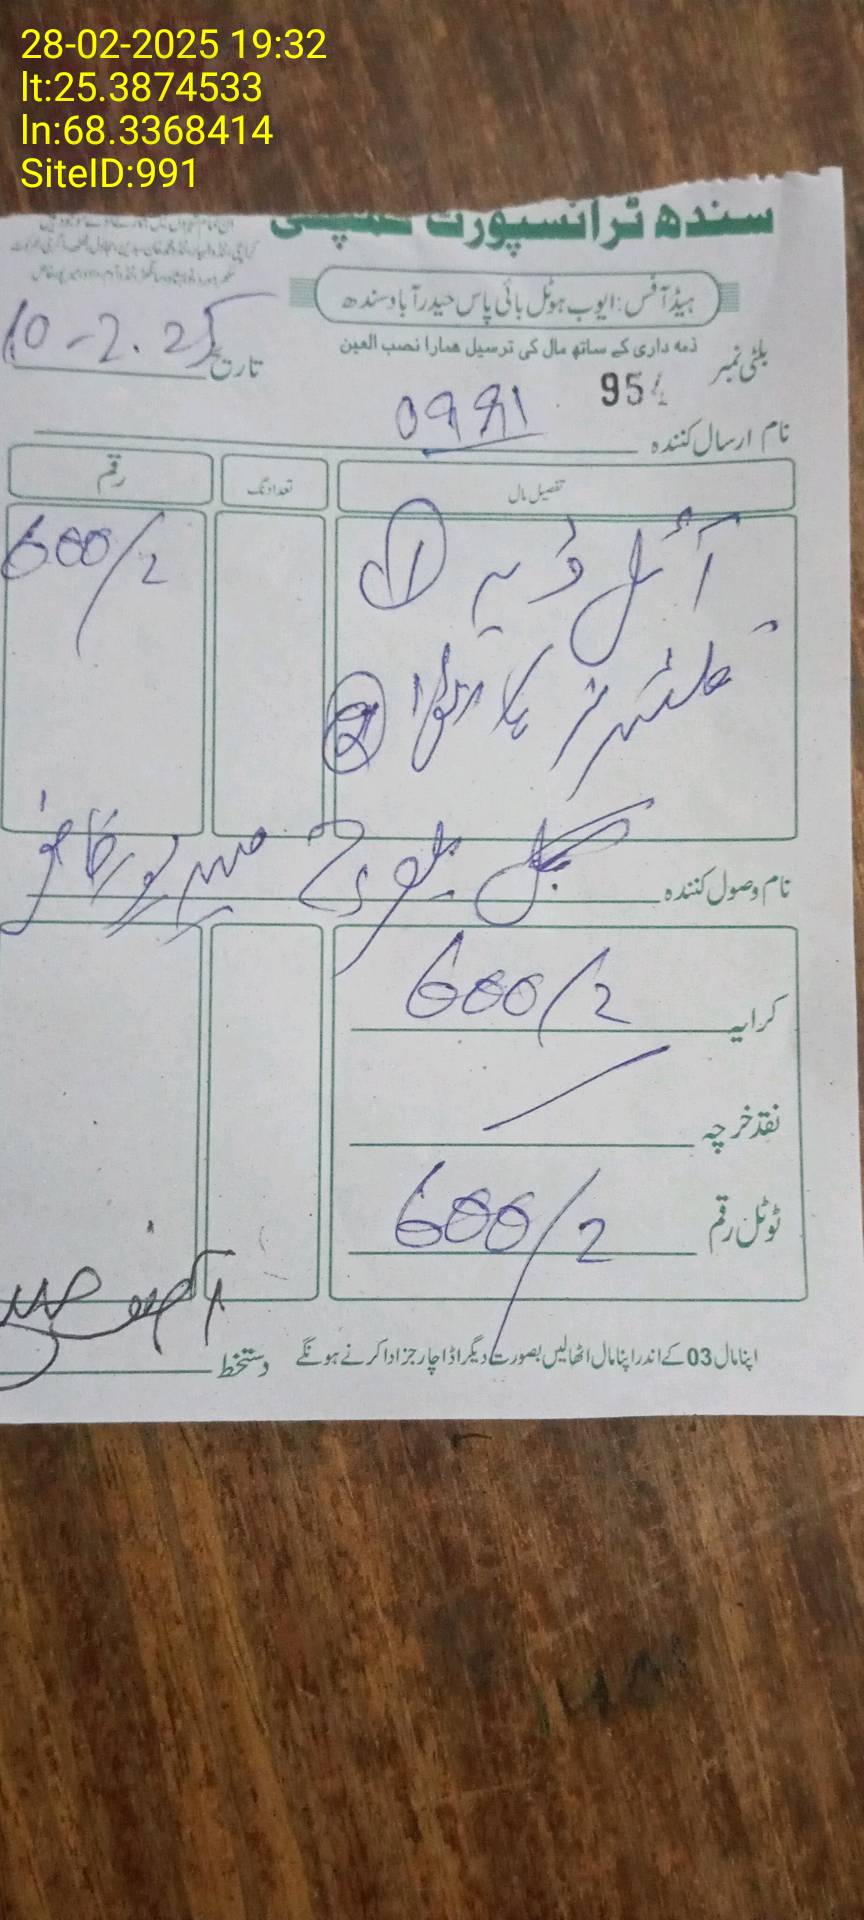 28-02-2025 19:32
lt:25.3874533
ln:68.3368414
SiteID:991
سندھ ٹرانسپورٹ کمپنی
ہیڈ آفس: ایوب ہوٹل بائی پاس حیدرآباد سندھ
ذمہ داری کے ساتھ مال کی ترسیل ہمارا نصب العین
بلٹی نمبر 954
تاریخ 10-2.25
نام ارسال کنندہ 0991
تفصیل مال تعداد نگ رقم
آئل ڈبہ 1 600/2
فلٹر
نام وصول کنندہ گل بلوچ میرپورخاص
کرایہ 600/2
نقد خرچہ
ٹوٹل رقم 600/2
اپنا مال 03 کے اندر اپنا مال اٹھالیں بصورت دیگر اڈا چارجز ادا کرنے ہونگے
دستخط